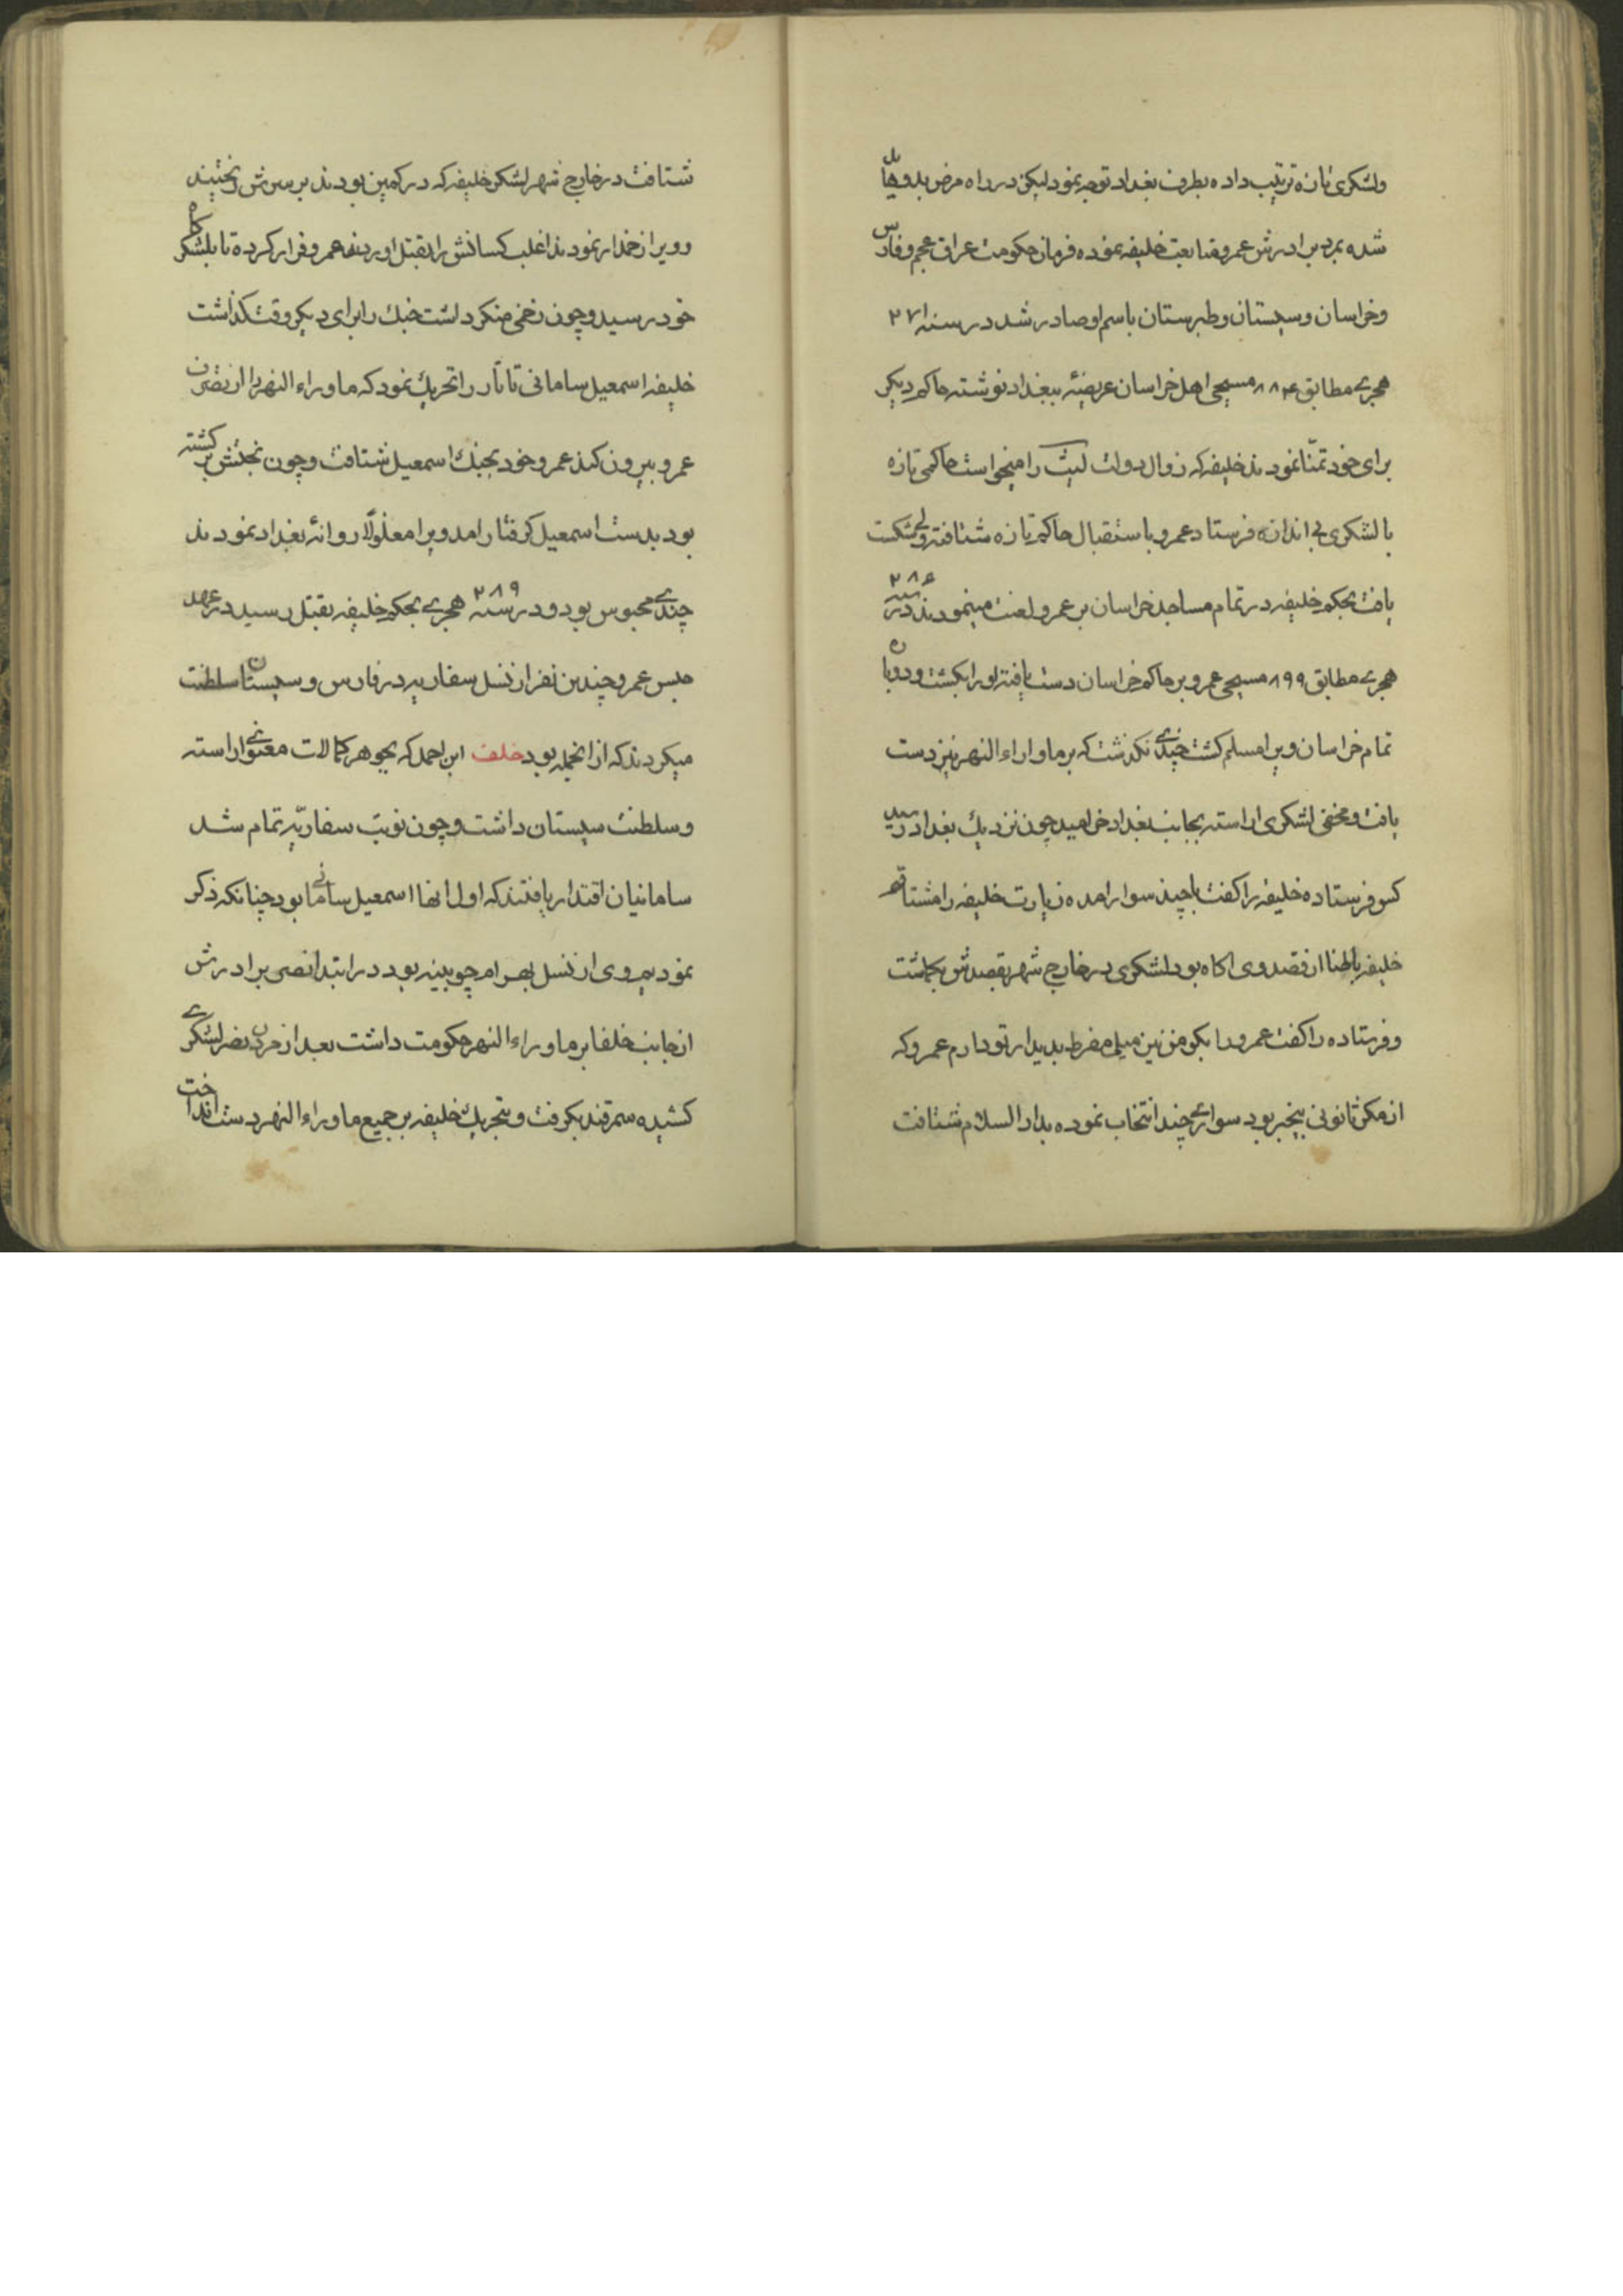 ولشکری تازه ترتیب داده بطرف بغداد توجه نمود لیکن در راه مرض بدو هایل
شده بمرد برادرش عمرو متابعت خلیفه نموده فرمان حکومت عراق عجم و فارس
وخراسان وسیستان وطبرستان باسم او صادر شد در سنه ۲۷۱
هجرے مطابق ۸۸۴ مسیحی اهل خراسان عریضهٔ ببغداد نوشته حاکم دیکر
برای خود تمنّا نمودند خلیفه که زوال دولت لیث را میخواست حاکمی تازه
با لشکری بی اندازه فرستاد عمرو باستقبال حاکم تازه شتافته ولی شکست
یافت بحکم خلیفه در تمام مساجد خراسان بر عمرو لعنت مینمودند در سنه ۲۸۶
هجرے مطابق ۸۹۹ مسیحی عمرو بر حاکم خراسان دست یافته او را بکشت و دوباره
تمام خراسان ویرا مسلم کشت چندے نکذشت که بر ماواراء النهر نیز دست
یافت و مخفی لشکری اراسته بجانب بغداد خرامید چون نزدیك بغداد رسید
کس فرستاده خلیفه را کفت با چند سوار امده زیارت خلیفه را مشتاقم
خلیفه باطنا از قصد وی اکاه بود لشکری در خارج شهر بقصدش بکماشت
وفرستاده را کفت عمرو را بکو من نیز میلی مفرط بدیدار تو دارم عمرو که
از مکر ثانوی بیخبر بود سوارے چند انتخاب نموده بدار السلام شتافت
شتافت در خارج شهر لشکر خلیفه که در کمین بودند بر سرش ریختند
وویرا زخمدار نمودند اغلب کسانش را بقتل اوردند عمرو فرار کرده تا بلشکرکاه
خود رسید و چون زخمی منکر داشت جنك را برای دیکر وقت کذاشت
خلیفه اسمعیل سامانی تاتار را تحریك نمود که ماوراء النهر را از تصرف
عمرو بیرون کند عمرو خود بجنك اسمعیل شتافت و چون بختش برکشته
بود بدست اسمعیل کرفتار امد ویرا مغلولا روانهٔ بغداد نمودند
چندے محبوس بود و در سنه ۲۸۹ هجرے بحکم خلیفه بقتل رسید در عهد
حبس عمرو چندین نفر از نسل سفاریه در فارس و سیستان سلطنت
میکردند که از انجمله بود خلف ابن احمد که بجوهر کمالات معنوے اراسته
وسلطنت سیستان داشت و چون نوبت سفاریّه تمام شد
سامانیان اقتدار یافتند که اول انها اسمعیل سامانے بود چنانکه ذکر
نمودیم وی از نسل بهرام چوبینه بود در ابتدا نصر برادرش
از جانب خلفا بر ماوراء النهر حکومت داشت بعد از مردن نصر لشکرے
کشیده سمرقند بکرفت و بتحریك خلیفه بر جمیع ماوراء النهر دست انداخت